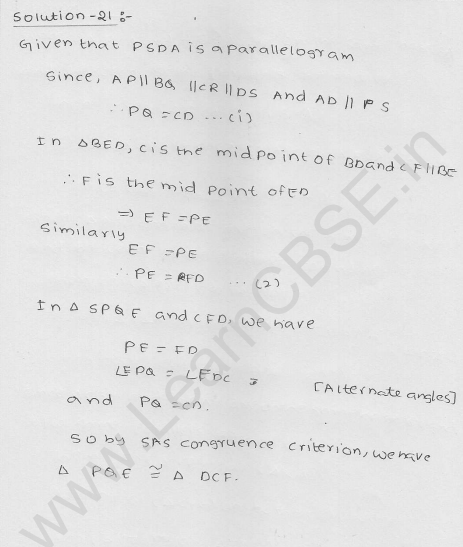 Solution-21 :-
Given that PSDA is a parallelogram
Since, AP || BQ || CR || DS And AD || PS
∴ PQ = CD ... (i)
In ΔBED, C is the midpoint of BD and CF || BE
∴ F is the mid point of ED
⇒ EF = PE
Similarly
EF = PE
∴ PE = FD ... (2)
In Δ SPQE and CFD, we have
PE = FD
∠EPQ = ∠FDC [Alternate angles]
and PQ = CD.
So by SAS congruence criterion, we have
Δ PQE ≅ Δ DCF.
www.LearnCBSE.in